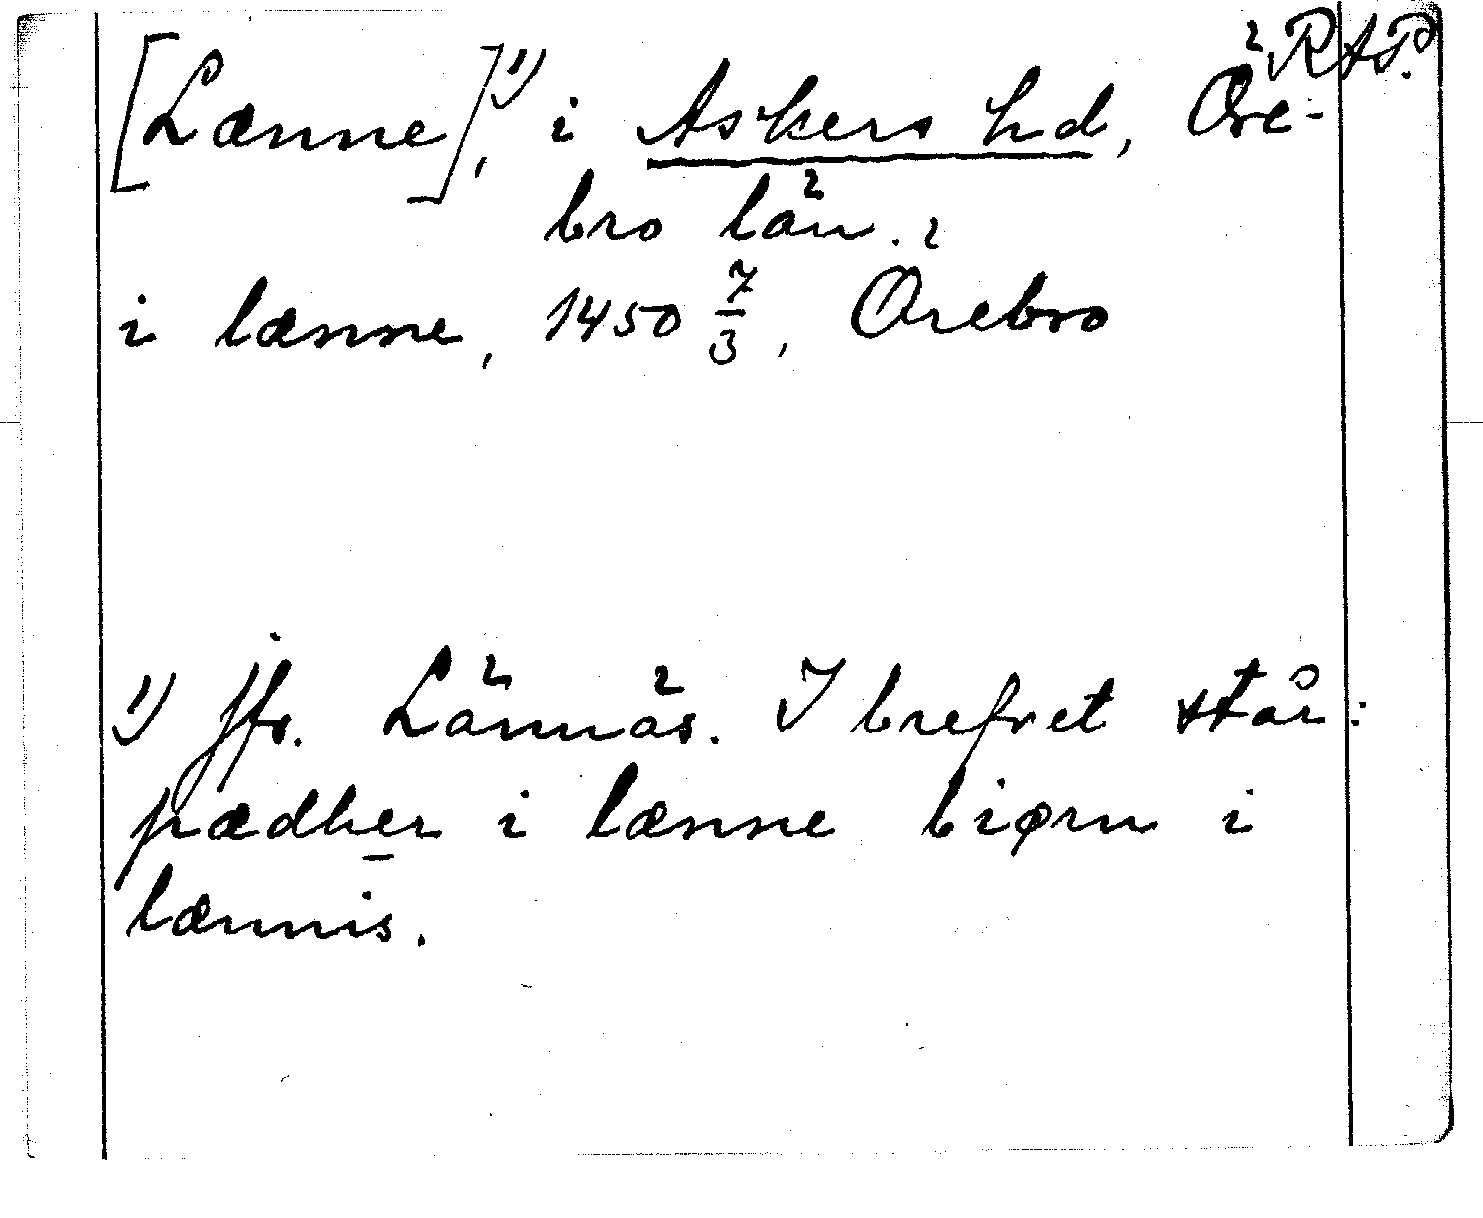 RAP.
[Lænne]¹⁾, i Askers hd, Öre-
bro län.
i lænne, 1450 7/3, Örebro
¹⁾ Jfr. Lännäs. I brefvet står:
pædher i lænne biørn i
lænnis.